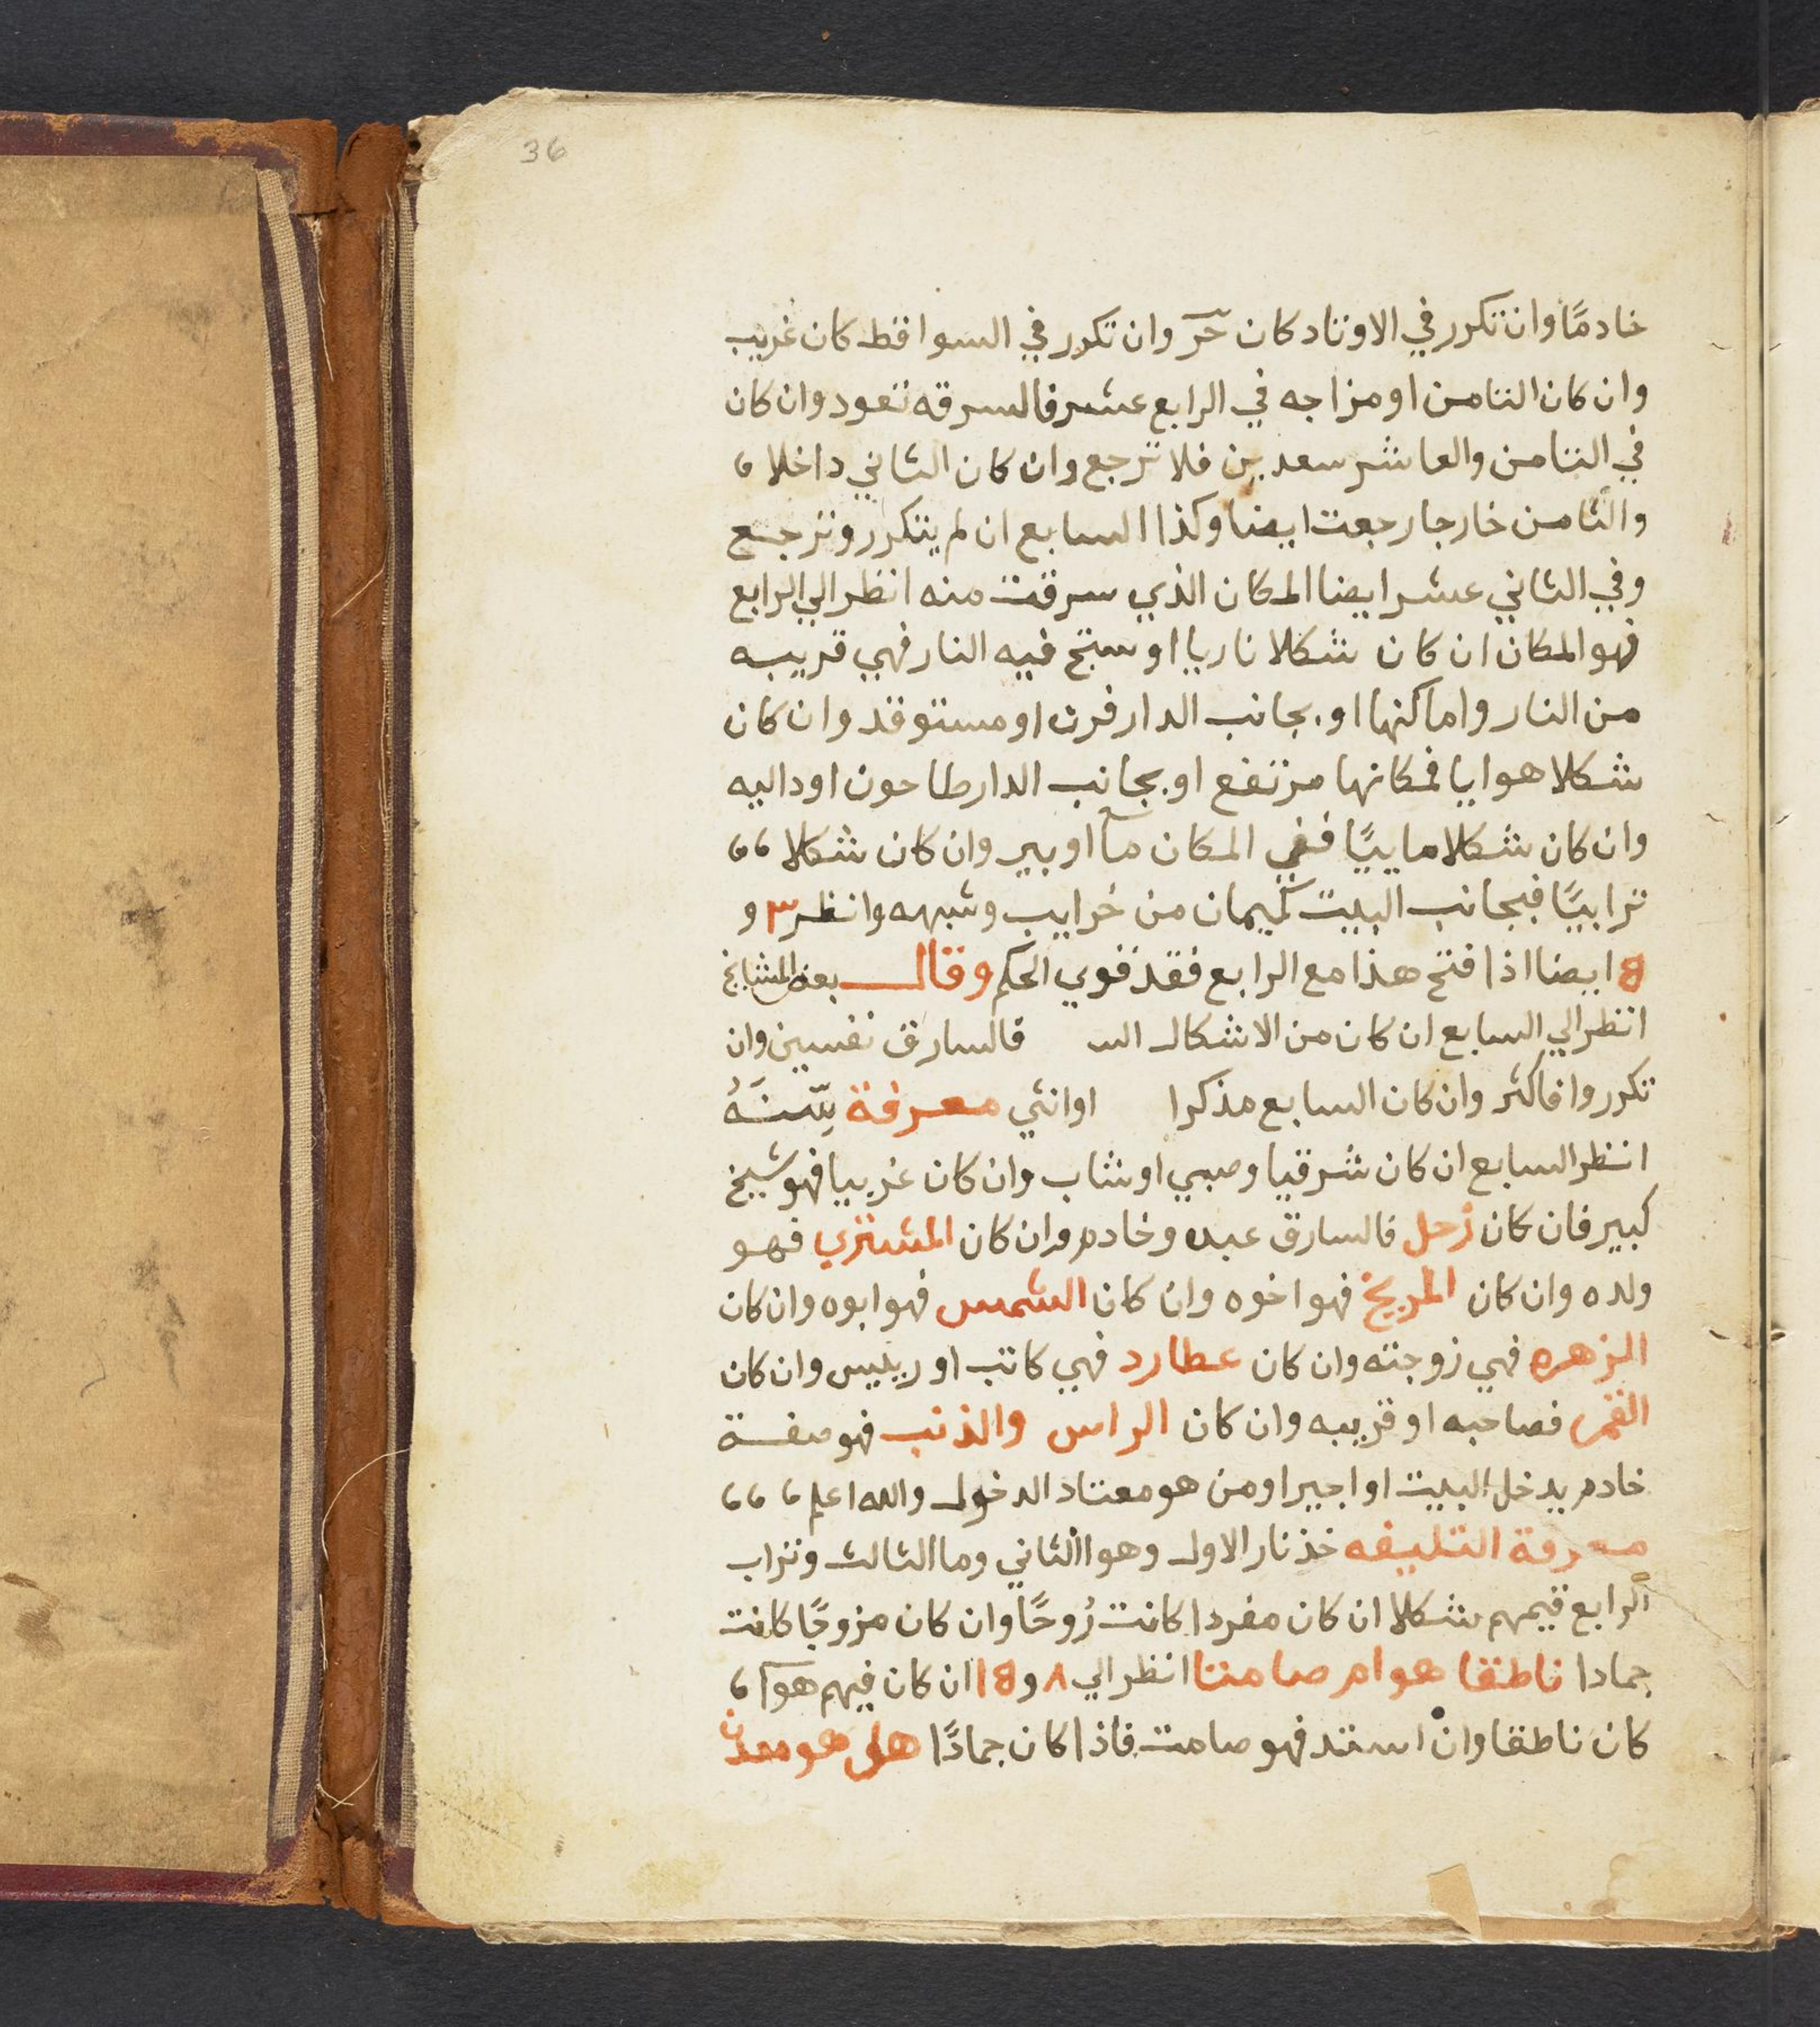 36
خادمًا وان تكرر في الاوتاد كان حرّ وان تكرر في السواقط كان غريب
وان كان الثامن او مزاجه في الرابع عشر فالسرقه تعود وان كان
في الثامن والعاشر سعدين فلا ترجع وان كان الثاني داخلا ،
والثامن خارجا رجعت ايضا وكذا السابع ان لم يتكرر وترجع
وفي الثاني عشر ايضا المكان الذي سرقت منه انظر الي الرابع
فهو المكان ان كان شكلا ناريا او ستج فيه النار فهي قريبه
من النار واماكنها او بجانب الدار فرن او مستوقد وان كان
شكلا هوايا فمكانها مرتفع او بجانب الدار طاحون او داليه
وان كان شكلا ماييًا ففي المكان مآ او بير وان كان شكلا ،،
ترابيًا فبجانب البيت كيمان من خرايب وشبهه وانظر ٣ و
8 ايضا اذا فتح هذا مع الرابع فقد قوي الحكم وقال بعض المشايخ
انظر الي السابع ان كان من الاشكال الـ فالسارق نفسين وان
تكرروا فاكثر وان كان السابع مذكرا او انثي معرفة سِنّهُ
انظر السابع ان كان شرقيا وصبي او شاب وان كان غربيا فهو شيخ
كبير فان كان زحل فالسارق عبده وخادم وان كان المشتري فهو
ولده وان كان المريخ فهو اخوه وان كان الشمس فهو ابوه وان كان
الزهره فهي زوجته وان كان عطارد فهي كاتب او رييس وان كان
القمر فصاحبه او قريبه وان كان الراس والذنب فهو صفة
خادم يدخل البيت او اجير او من هو معتاد الدخول والله اعلم ،،،
معرفة التليفه خذ نار الاول وهوا الثاني وما الثالث وتراب
الرابع قيمهم شكلا ان كان مفردا كانت رُوحًا وان كان مزوجًا كانت
جمادا ناطقا هو ام صامتا انظر الي ٨ و 18 ان كان فيهم هوآ ،
كان ناطقا وان استد فهو صامت فاذا كان جمادًا هل هو معدن